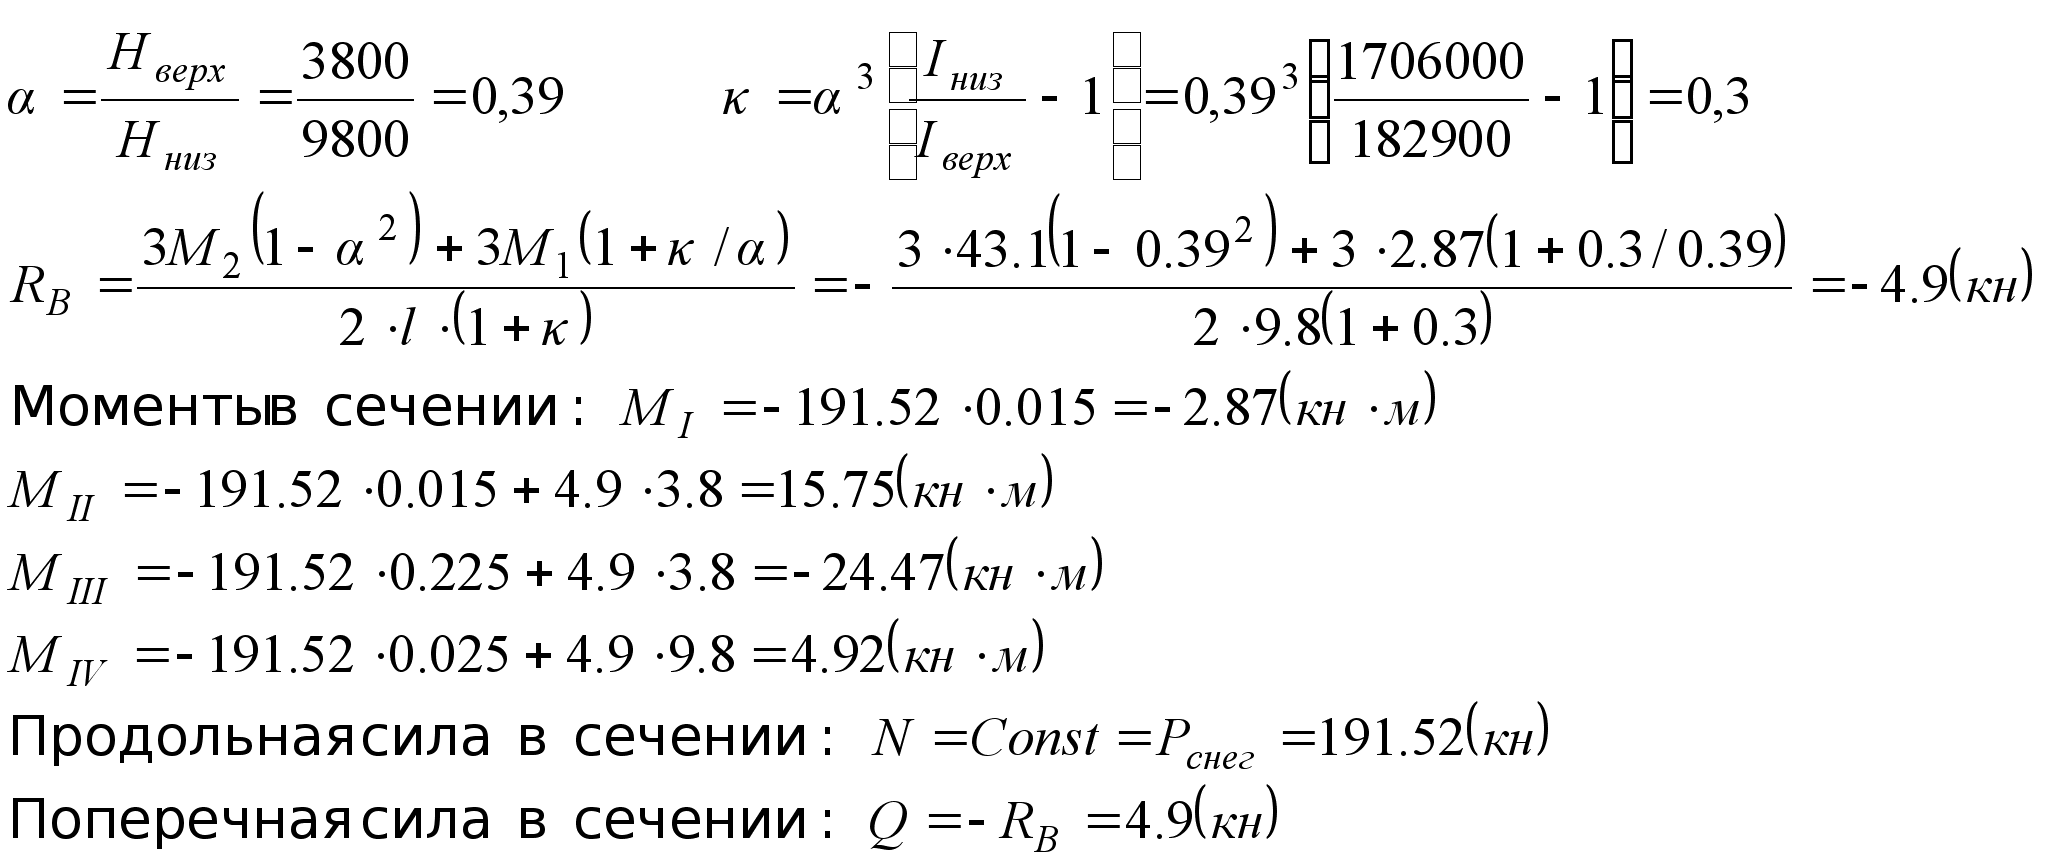 α = H верх / H низ = 3800 / 9800 = 0,39    к = α³ (I низ / I верх - 1) = 0,39³ (1706000 / 182900 - 1) = 0,3
R_B = 3M₂(1 - α²) + 3M₁(1 + к / α) / 2 · l · (1 + к) = - 3 · 43.1(1 - 0.39²) + 3 · 2.87(1 + 0.3 / 0.39) / 2 · 9.8(1 + 0.3) = - 4.9(кн)
Моментыв сечении : M_I = - 191.52 · 0.015 = - 2.87(кн · м)
M_II = - 191.52 · 0.015 + 4.9 · 3.8 = 15.75(кн · м)
M_III = - 191.52 · 0.225 + 4.9 · 3.8 = - 24.47(кн · м)
M_IV = - 191.52 · 0.025 + 4.9 · 9.8 = 4.92(кн · м)
Продольнаясила в сечении : N = Const = P снег = 191.52(кн)
Поперечнаясила в сечении : Q = - R_B = 4.9(кн)